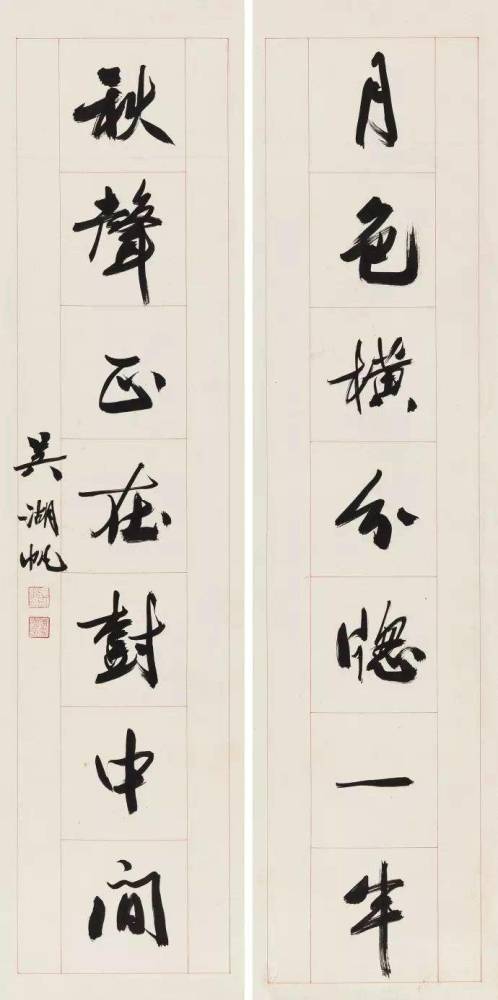 月色橫分牕一半
秋聲正在樹中間
吴湖帆